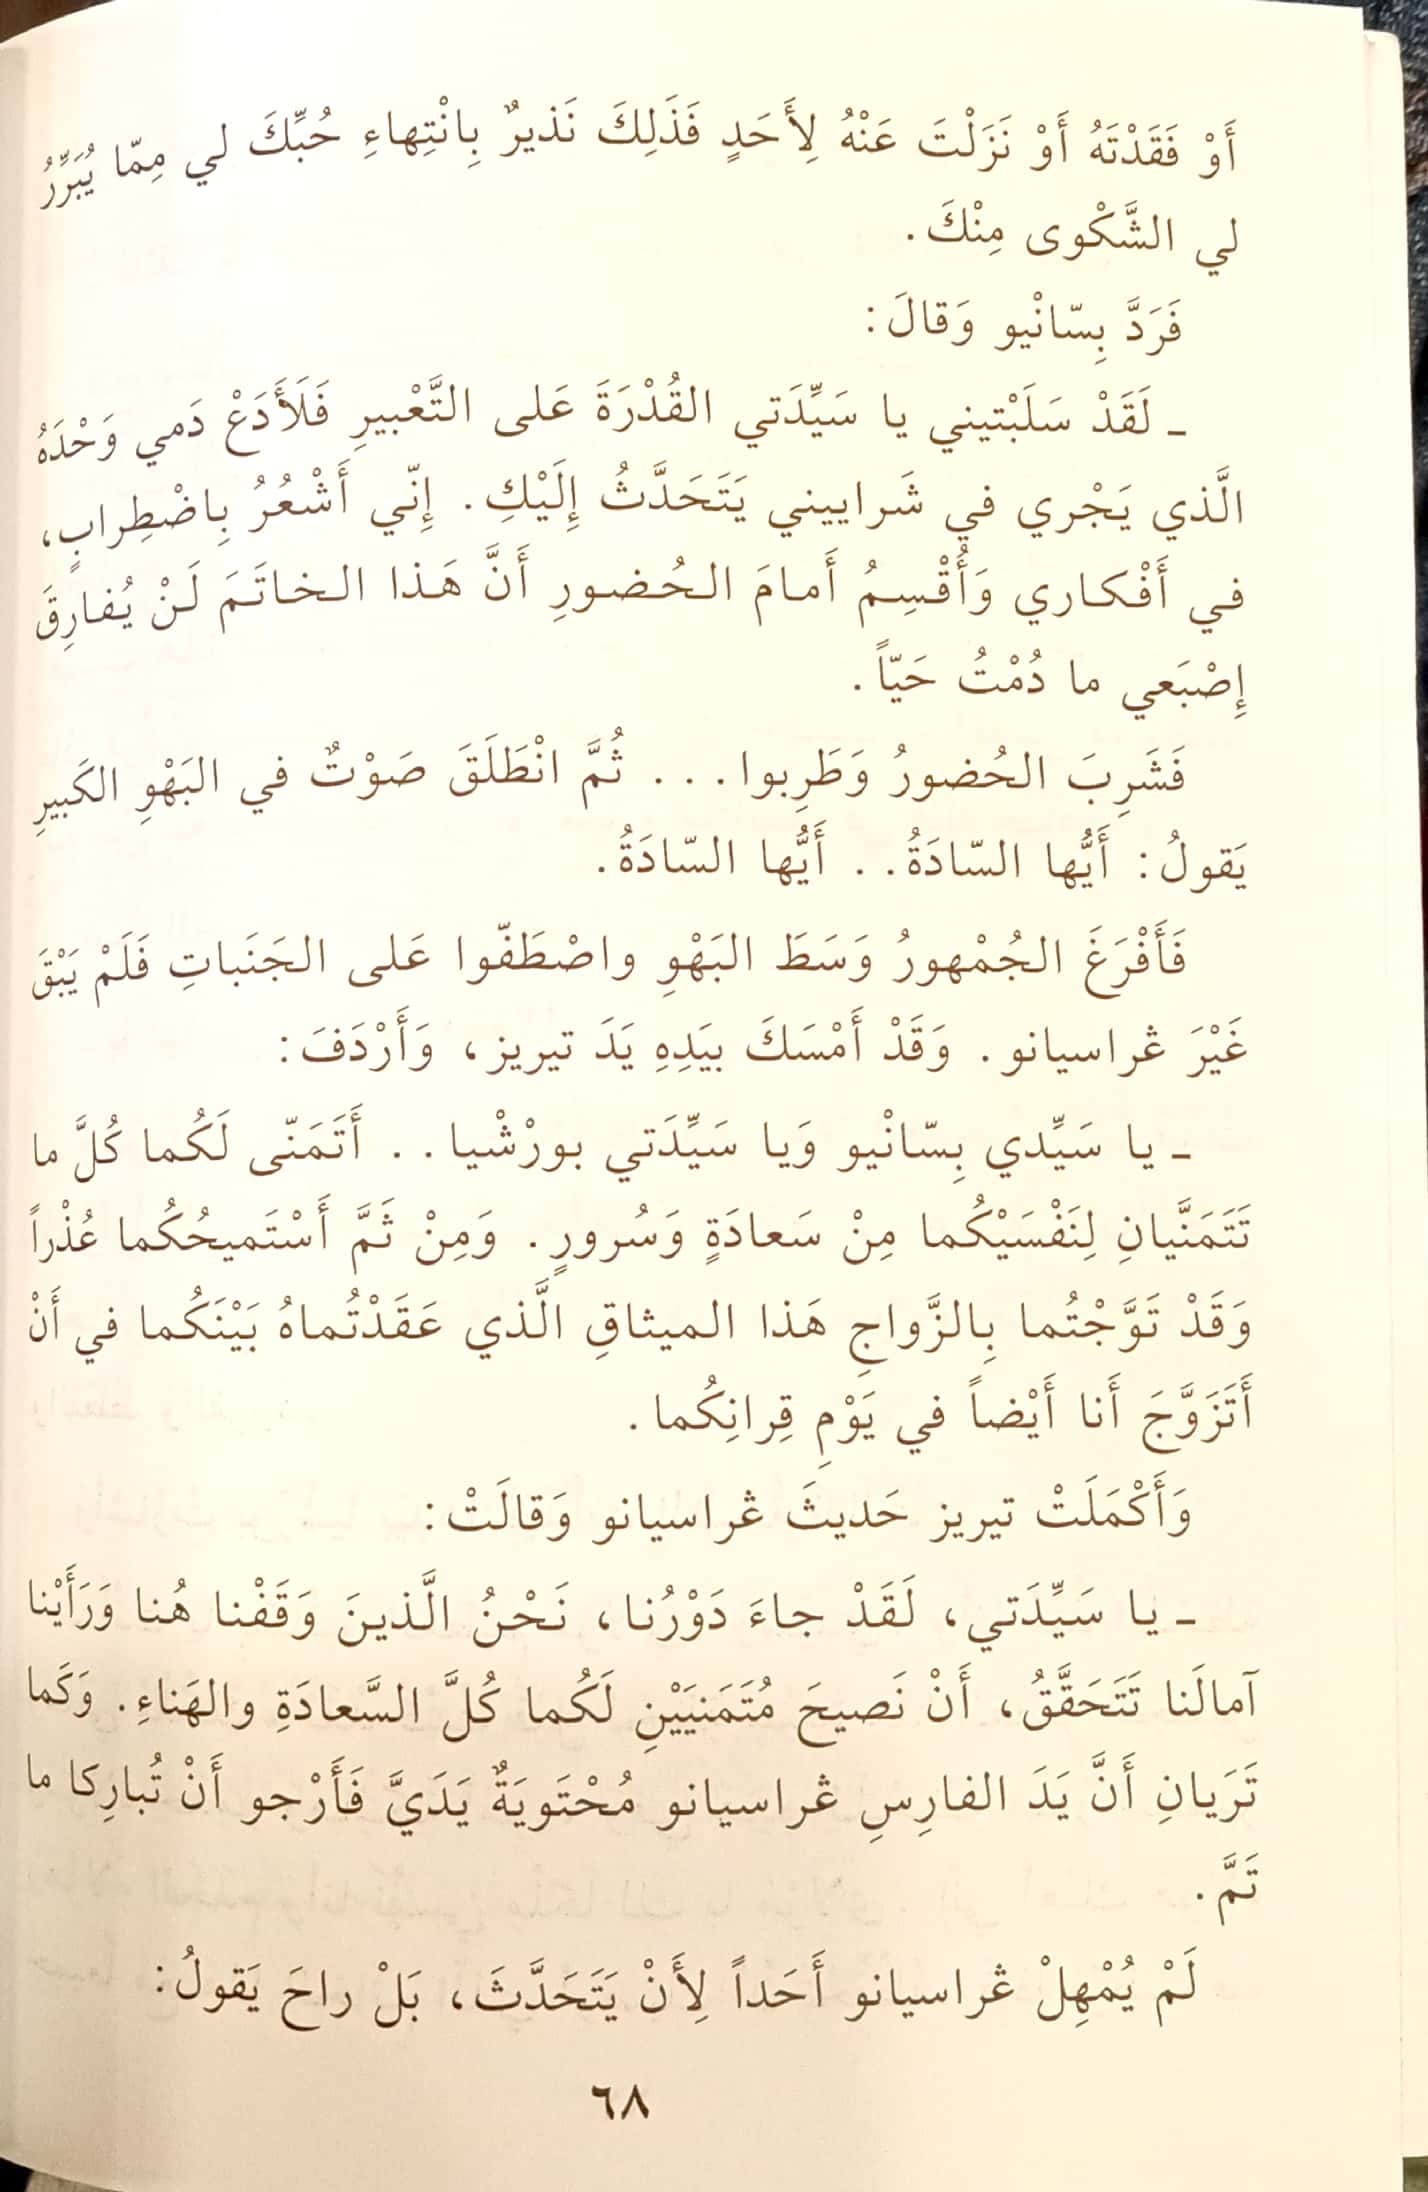 أَوْ فَقَدْتَهُ أَوْ نَزَلْتَ عَنْهُ لِأَحَدٍ فَذَلِكَ نَذيرٌ بِانْتِهاءِ حُبِّكَ لي مِمّا يُبَرِّرُ
لي الشَّكْوى مِنْكَ.
فَرَدَّ بِسّانْيو وَقالَ:
ـ لَقَدْ سَلَبْتيني يا سَيِّدَتي القُدْرَةَ عَلى التَّعْبيرِ فَلَأَدَعْ دَمي وَحْدَهُ
الَّذي يَجْري في شَراييني يَتَحَدَّثُ إِلَيْكِ. إِنّي أَشْعُرُ بِاضْطِرابٍ،
في أَفْكاري وَأُقْسِمُ أَمامَ الحُضورِ أَنَّ هَذا الخاتَمَ لَنْ يُفارِقَ
إِصْبَعي ما دُمْتُ حَيّاً.
فَشَرِبَ الحُضورُ وَطَرِبوا... ثُمَّ انْطَلَقَ صَوْتٌ في البَهْوِ الكَبيرِ
يَقولُ: أَيُّها السّادَةُ.. أَيُّها السّادَةُ.
فَأَفْرَغَ الجُمْهورُ وَسَطَ البَهْوِ واصْطَفّوا عَلى الجَنَباتِ فَلَمْ يَبْقَ
غَيْرَ ڠراسيانو. وَقَدْ أَمْسَكَ بيَدِهِ يَدَ تيريز، وَأَرْدَفَ:
ـ يا سَيِّدي بِسّانْيو وَيا سَيِّدَتي بورْشْيا.. أَتَمَنّى لَكُما كُلَّ ما
تَتَمَنَّيانِ لِنَفْسَيْكُما مِنْ سَعادَةٍ وَسُرورٍ. وَمِنْ ثَمَّ أَسْتَميحُكُما عُذْراً
وَقَدْ تَوَّجْتُما بِالزَّواجِ هَذا الميثاقِ الَّذي عَقَدْتُماهُ بَيْنَكُما في أَنْ
أَتَزَوَّجَ أَنا أَيْضاً في يَوْمِ قِرانِكُما.
وَأَكْمَلَتْ تيريز حَديثَ ڠراسيانو وَقالَتْ:
ـ يا سَيِّدَتي، لَقَدْ جاءَ دَوْرُنا، نَحْنُ الَّذينَ وَقَفْنا هُنا وَرَأَيْنا
آمالَنا تَتَحَقَّقُ، أَنْ نَصيحَ مُتَمَنيَيْنِ لَكُما كُلَّ السَّعادَةِ والهَناءِ. وَكَما
تَرَيانِ أَنَّ يَدَ الفارِسِ ڠراسيانو مُحْتَويَةٌ يَدَيَّ فَأَرْجو أَنْ تُبارِكا ما
تَمَّ.
لَمْ يُمْهِلْ ڠراسيانو أَحَداً لِأَنْ يَتَحَدَّثَ، بَلْ راحَ يَقولُ:
٦٨